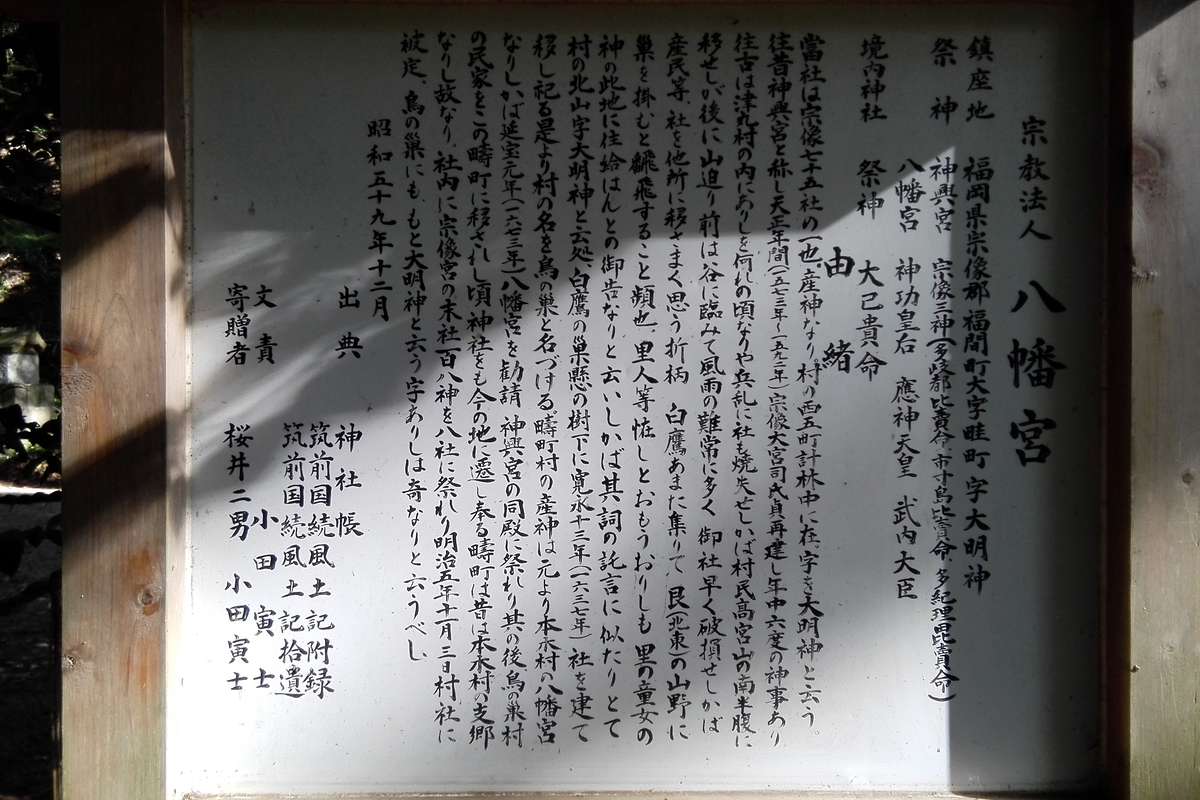 宗教法人 八幡宮
鎮座地 福岡県宗像郡福間町大字畦町字大明神
祭神 神興宮 宗像三神(多岐都比賣命、市寸島比賣命、多紀理毘賣命)
八幡宮 神功皇后 應神天皇 武内大臣
境内神社 祭神 大己貴命
由緒
當社は宗像七十五社の一也、産神なり、村の西五町計林中に在、字を大明神と云う。
往昔神興宮と称し天正年間(一五七三年~一五九二年)宗像大宮司氏貞再建し年中六度の神事あり
往古は津丸村の内にありしを何れの頃なりや兵乱に社も焼失せしかば村民高宮山の南半腹に
移せしが後に山迫り前は谷に臨みて風雨の難常に多く 御社早く破損せしかば
産民等、社を他所に移さまく思う折柄 白鷹あまた集りて、艮(北東)の山野に
巣を掛むと飜飛すること頻也、里人等恠しとおもうおりしも 里の童女の
神の此地に住給はんとの御告なりと云いしかば其詞の託言に似たりとて
村の北山字大明神と云処、白鷹の巣懸の樹下に寛永十三年(一六三七年)社を建て
移し祀る是より村の名を鳥の巣と名づける疇町村の産神は元より本木村の八幡宮
なりしかば延宝元年(一六七三年)八幡宮を勧請 神興宮の同殿に祭れり其の後鳥の巣村
の民家をこの疇町に移されし頃神社をも今の地に遷し奉る疇町は昔は本木村の支郷
なりし故なり、社内に宗像宮の末社一百八神を八社に祭れり明治五年十一月三日村社に
被定、鳥の巣にも、もと大明神と云う字ありしは奇なりと云うべし
昭和五十九年十二月
出典 神社帳
筑前国続風土記附録
筑前国続風土記拾遺)
文責 小田寅士
寄贈者 桜井二男 小田寅士